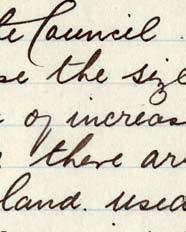 te Council
se the size
of increas
there are
land. used